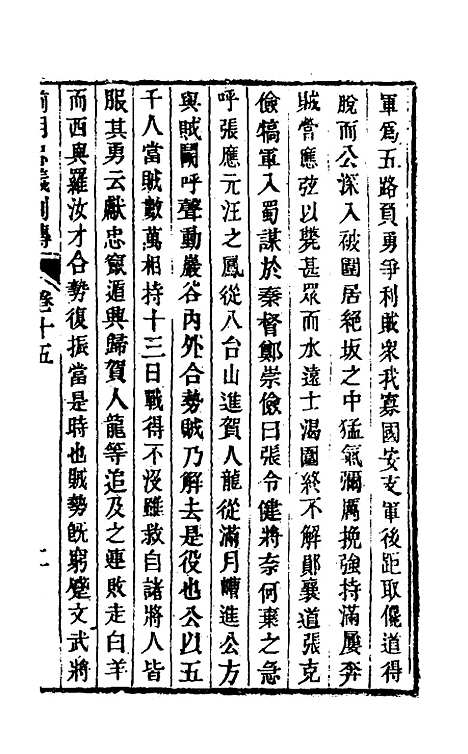 軍爲五路負勇爭利賊衆我寡國安支軍後距取僞道得
脫而公深入破圍居絕坂之中猛氣彌厲挽強持滿屢奔
賊當應弦以斃甚眾而水遠士渴圍終不解鄖襄道張克
儉犒軍入蜀謀於秦督鄭崇儉曰張令健將奈何棄之急
呼張應元汪之鳳從八台山進賀人龍從滿月𥕢進公方
與賊鬭呼聲動巖谷内外合勢賊乃解去是役也公以五
千人當賊數萬相持十三日戰得不沒雖救自諸將人皆
服其勇云獻忠竄遁興歸賀人龍等追及之連敗走白羊
而西與羅汝才合勢復振當是時也賊勢旣窮蹙文武將
前明忠義列傳 卷十五 二